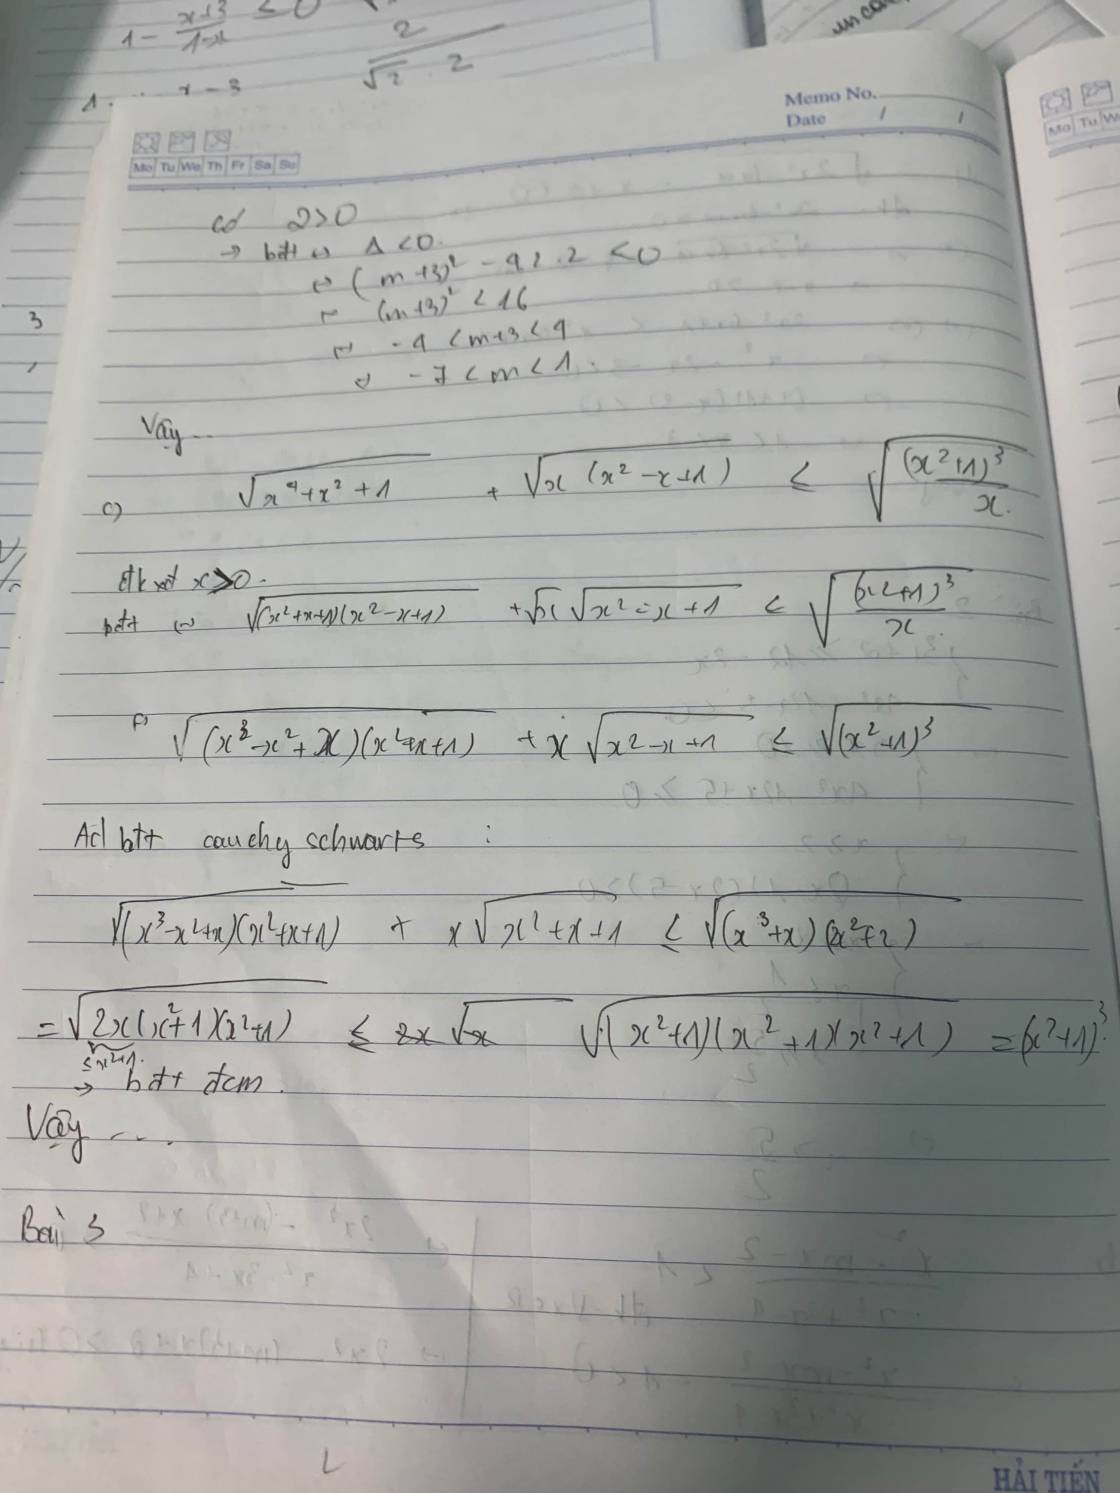 1 - x+3/1-x ≤ 0
2/√2 . 2
x - 3
Memo No.
Date / /
Mo Tu We Th Fr Sa Su
Mo Tu We
3
có 2>0
→ bđt ⇔ Δ<0.
⇔ (m+3)² - 42.2 <0
⇔ (m+3)² < 16
⇔ -4 < m+3 < 4
⇔ -7 < m < 1.
Vậy ...
c) √(x⁴+x²+1) + √(x (x²-x+1)) ≤ √((x²+1)³/x)
đk x>0.
bđt ⇔ √((x²+x+1)(x²-x+1)) + √x √(x²-x+1) ≤ √((x²+1)³/x)
⇔ √((x³-x²+x)(x²+x+1)) + x √(x²-x+1) ≤ √((x²+1)³)
Ad bđt cauchy schwarts :
√((x³-x²+x)(x²+x+1)) + x√(x²+x+1) ≤ √((x³+x)(x²+x+2))
= √(2x(x²+1)(x²+1)) ≤ √((x²+1)(x²+1)(x²+1)) = (x²+1)³
≤x²+1.
→ bđt đcm.
Vậy ....
Bài 3
HẢI TIẾN